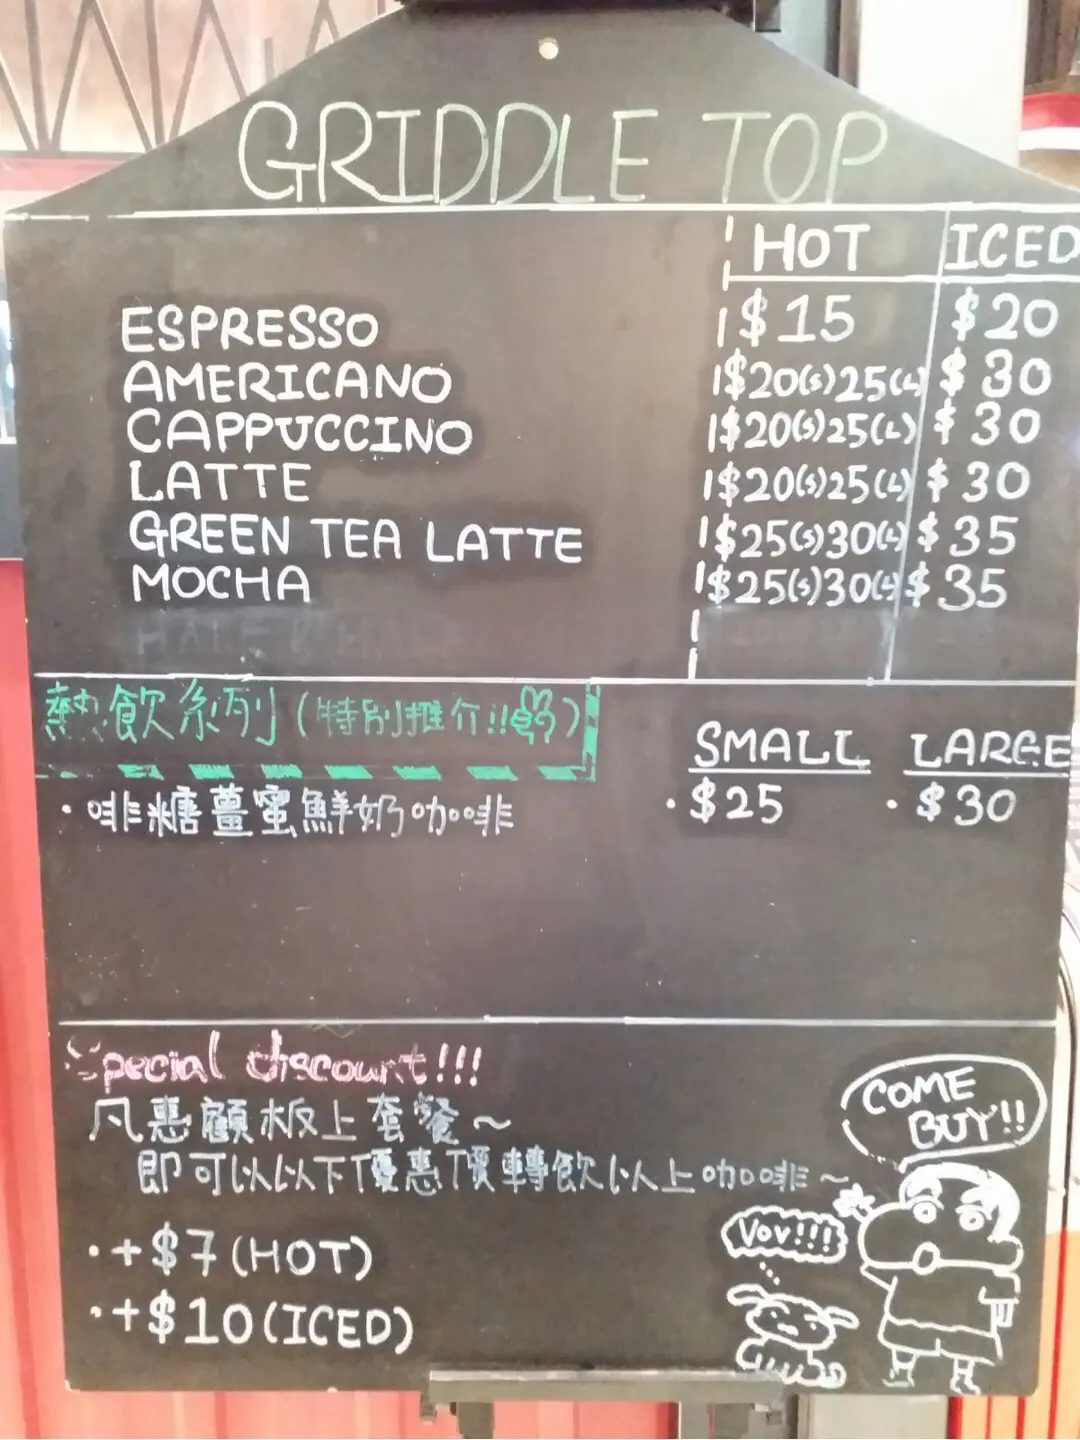 GRIDDLE TOP
HOT ICED
ESPRESSO $15 $20
AMERICANO $20(S)25(L) $30
CAPPUCCINO $20(S)25(L) $30
LATTE $20(S)25(L) $30
GREEN TEA LATTE $25(S)30(L) $35
MOCHA $25(S)30(L) $35
HALF & HALF
熱飲系列(特別推介!!)
SMALL LARGE
·啡糖薑蜜鮮奶咖啡 ·$25 ·$30
Special discount!!!
凡惠顧板上套餐~
即可以以下優惠價轉飲以上咖啡~
·+$7(HOT)
·+$10(ICED)
COME
BUY!!
Vov!!!